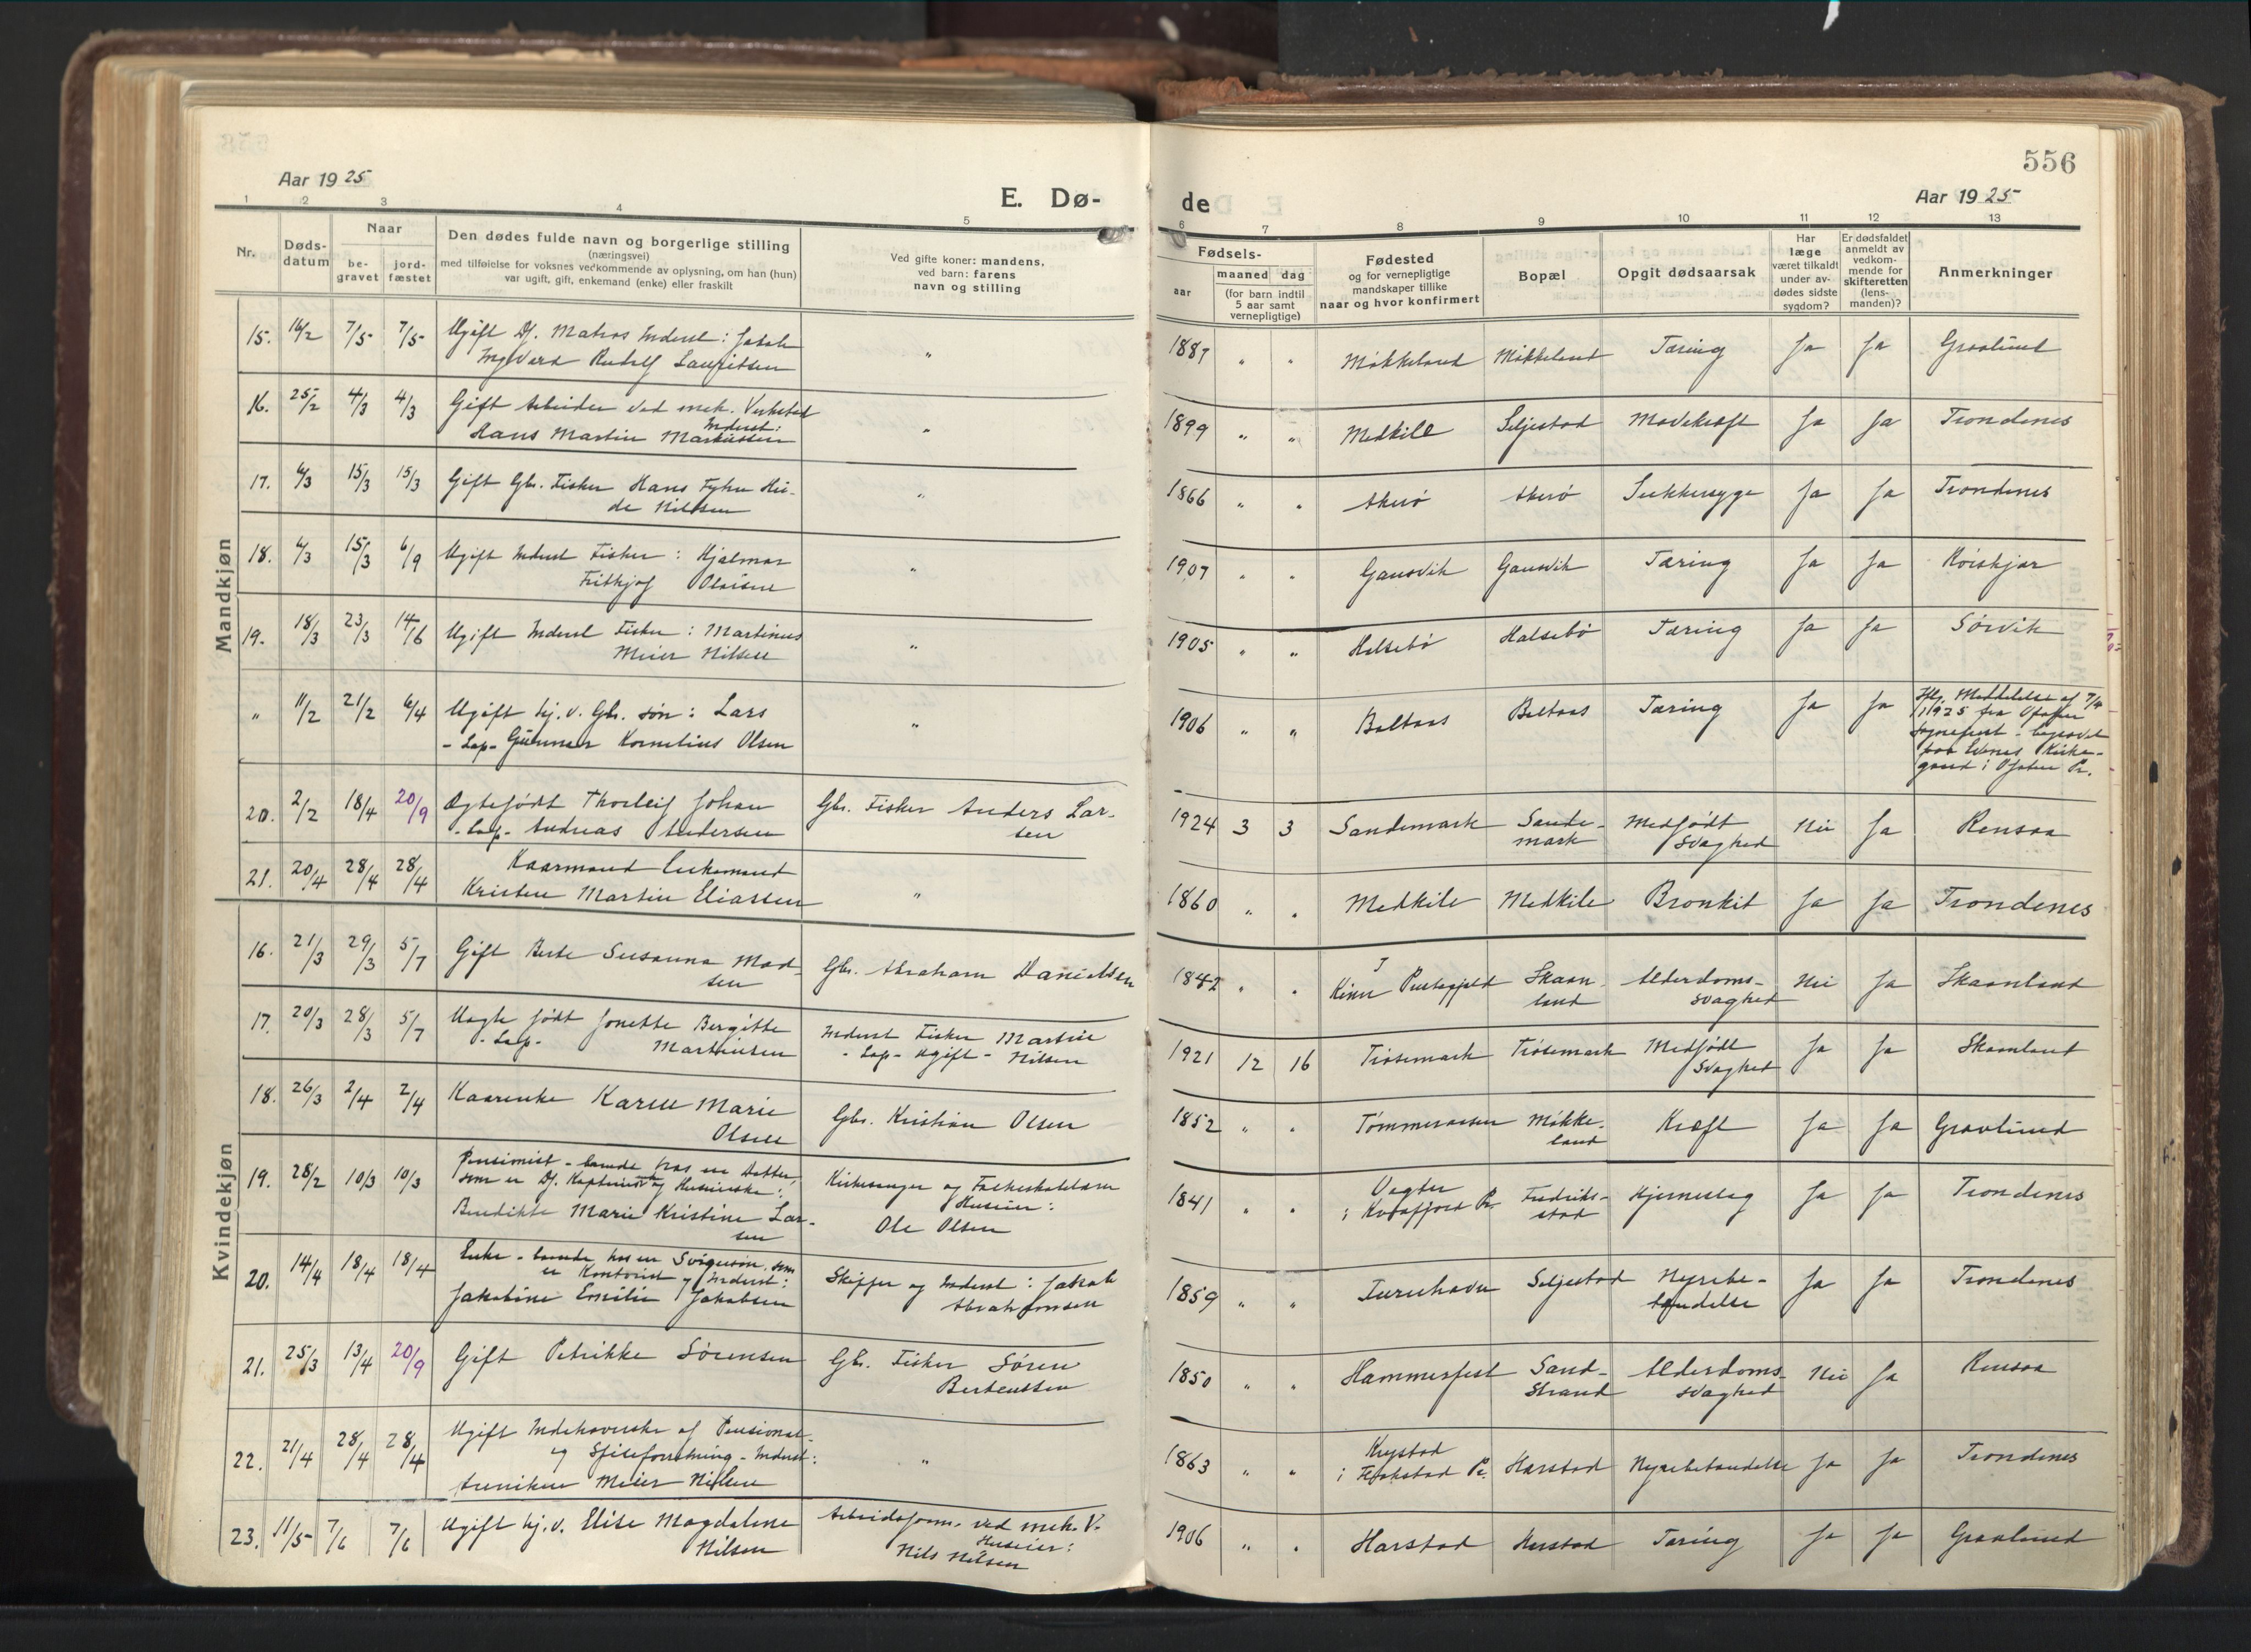 556
Aar 1925
Aar 1925
E. Dø-
de
1 2 3 4 5 6 7 8 9 10 11 12 13
Nr.
Døds-
datum
Naar
be-
gravet
jord-
fæstet
Den dødes fulde navn og borgerlige stilling
(næringsvei)
med tilføielse for voksnes vedkommende av oplysning, om han (hun)
var ugift, gift, enkemand (enke) eller fraskilt
Ved gifte koner: mandens,
ved barn: farens
navn og stilling
Fødsels-
aar
maaned dag
(for barn indtil
5 aar samt
vernepligtige)
Fødested
og for vernepligtige
mandskaper tillike
naar og hvor konfirmert
Bopæl
Opgit dødsaarsak
Har
læge
været tilkaldt
under av-
dødes sidste
sygdom?
Er dødsfaldet
anmeldt av
vedkom-
mende for
skifteretten
(lens-
manden)?
Anmerkninger
Mandkjøn
15. 16/2 7/5 7/5 Ugift Dj. Matros Inderst: Jakob
Ingvard Rudolf Lauritsen
" 1887 " " Møkkeland Møkkeland Tæring Ja Ja Gravlund
16. 25/2 4/3 4/3 Gift Arbeider ved mek. Verksted
Inderst:
Hans Martin Markussen
" 1899 " " Medkile Seljestad Mavekræft Ja Ja Trondenes
17. 6/3 15/3 15/3 Gift Gbr. Fisker Hans
de Nilsen
" 1866 " " Akerø Akerø Sukkersyge Ja Ja Trondenes
18. 6/3 15/3 6/9 Ugift Inderst Fisker: Hjalmar
Frithjof Olaisen
" 1907 " " Gausvik Gausvik Tæring Ja Ja
19. 18/3 23/3 14/6 Ugift Inderst Fisker: Martinus
Meier Nilsen
" 1905 " " Halsebø Halsebø Tæring Ja Ja Sørvik
" 11/2 21/2 6/4 Ugift hj. v. Gbr. søn: Lars
- Lap- Gunnar Kornelius Olsen
" 1906 " " Boltaas Boltaas Tæring Ja Ja
Iflg. Meddelelse af 7/4
1925 fra Ofoten
Sogneprest - begravet
paa Evenes Kirke-
gaard i Ofoten Pr.
20. 2/2 18/4 20/9 Ægtefødt Thorleif Johan
- Lap- Andreas Andersen
Gbr. Fisker Anders Lar-
sen
1924 3 3 Sandemark Sande-
mark
Medfødt
svaghed
Nei Ja Rensaa
21. 20/4 28/4 28/4 Kaarmand Enkemand
Kristen Martin Eliassen
" 1860 " " Medkile Medkile Bronkit Ja Ja Trondenes
Kvindekjøn
16. 21/3 29/3 5/7 Gift Berte Susanna Mad-
sen
Gbr. Abraham Danielsen
1842 " " I
Kinn Prestegjeld
Skaan-
land
Alderdoms-
svaghed
Nei Ja Skaanland
17. 20/3 28/3 5/7 Uægte født Jonette Bergitte
- Lap- Martinsen
Inderst Fisker Martin
- Lap- Ugift - Nilsen
1921 12 16 Trøsemark Trøsemark Medfødt
svaghed
Ja Ja Skaanland
18. 26/3 2/4 2/4 Kaarenke Karen Marie
Olsen
Gbr. Kristian Olsen
1852 " " Tømmeraasen Møkke-
land
Kræft Ja Ja Gravlund
19. 28/2 10/3 10/3 Pensionist - boende hos en Datter,
som er Dj. og Huseierske:
Benedikte Marie Kristine Lar-
sen
Kirkesanger og Folkeskolelærer
Huseier:
Ole Olsen
1841 " "
i Kvæfjord Pr.
Fredrik-
stad
Hjerneslag Ja Ja Trondenes
20. 14/4 18/4 18/4 Enke - boende hos en Svigersøn, som
er Kontorist og Inderst:
Jakobine Emilie Jakobsen
Skipper og Inderst: Jakob
Abrahamsen
1859 " " Seljestad Nyrebe-
tændelse
Ja Ja Trondenes
21. 25/3 13/4 20/9 Gift Petrikke Sørensen
Gbr. Fisker Søren
Berteussen
1850 " " Hammerfest Sand-
strand
Alderdoms-
svaghed
Nei Ja Rensaa
22. 21/4 28/4 28/4 Ugift Indehaverske af Pensionat-
og Spiseforretning - Inderst:
Meier Nilsen
" 1863 " "
i Flakstad Pr.
Harstad Nyrebetændelse Ja Ja Trondenes
23. 11/5 7/6 7/6 Ugift hj. v. Elise Magdalene
Nilsen
Arbeidsform. ved mek. V.
Huseier:
Nils Nilsen
1906 " " Harstad Harstad Tæring Ja Ja Gravlund